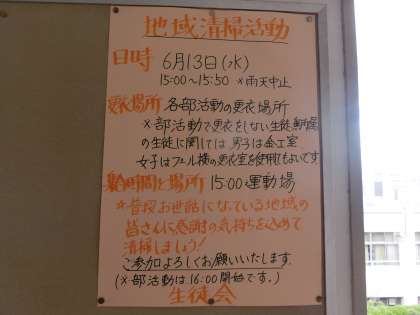 地域清掃活動
日時 6月13日(水)
15:00〜15:50 ※雨天中止
更衣場所 各部活動の更衣場所
※部活動で更衣をしない生徒、
の生徒に関しては男子は金工室
女子はプール横の更衣室を使用してもよいです
集合時間と場所 15:00 運動場
☆普段お世話になっている地域の
皆さんに感謝の気持ちを込めて
清掃しましょう!
ご参加よろしくお願いいたします
(※部活動は16:00開始です。)
生徒会